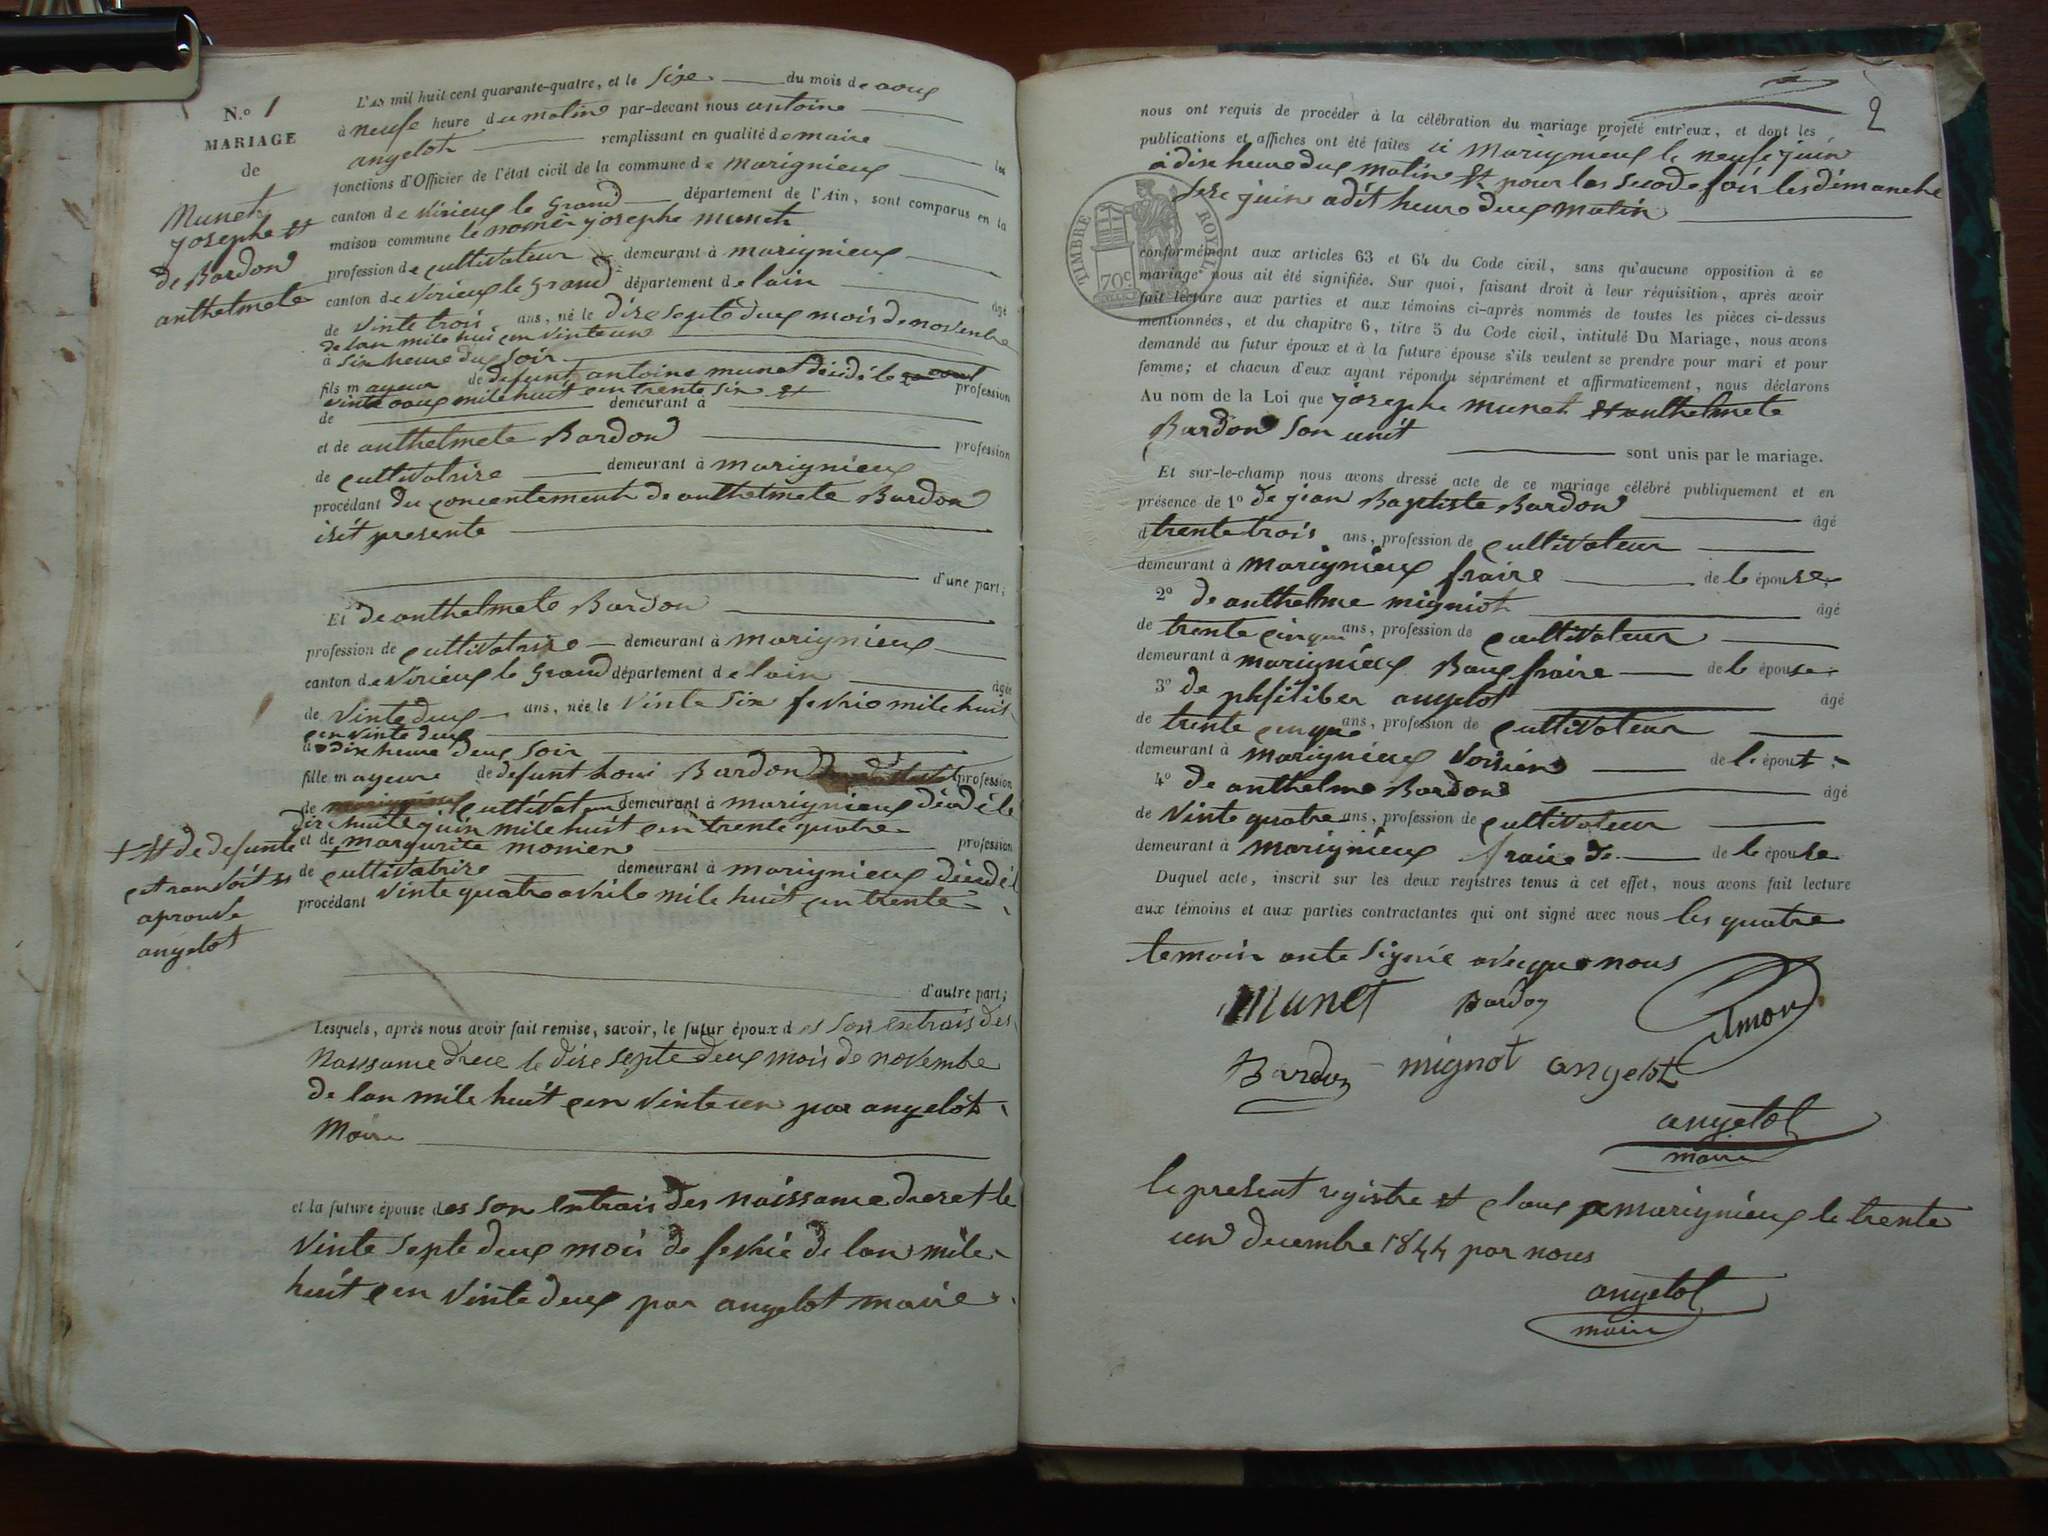 N.o 1
MARIAGE
de
Munet
josephe et
de Bardon
anthelmete
L'an mil huit cent quarante-quatre, et le sixe du mois de aous
à neufe heure du matine par-devant nous antoine
angelot remplissant en qualité de maire les
fonctions d'Officier de l'état civil de la commune de marignieux
canton de virieux le grand département de l'Ain, sont comparus en la
maison commune le nomér josephe munet
profession de cultivateur demeurant à marignieux
canton de virieux le grand département de lain âgé
de vinte trois ans, né le dixe septe deux mois de novenbre
de lan mile hui cen vinte un
à six heure dux soir
fils mayeur de defunt antoine munet décidé le
vinte aous mile huit cen trente six et profession
de demeurant à
et de anthelmete Bardon profession
de cultivatrire demeurant à marignieux
procédant du concentement de anthelmete Bardon
isit presente
d'une part;
Et de anthelmete Bardon
profession de cultivatrire demeurant à marignieux
canton de virieux le grand département de lain âgée
de vinte deux ans, née le vinte six fevrie mile huit
cen vinte deux
à dix heure deux soir
fille mayeure de defunt loui Bardon profession
de cultivateur demeurant à marignieux décidé le
dix huite juin mile huit cen trente quatre
et de + margurite monier profession
de cultivatrire demeurant à marignieux décidé l
procédant vinte quatre avrile mile huit cen trente
+ et de defunte
et ranvoit
aprouve
angelot
d'autre part;
Lesquels, après nous avoir fait remise, savoir, le futur époux des son extrais des
naissance drece le dixe septe deux mois de novembre
de lan mile huit cen vinte un par angelot
maire
et la future épouse des son extrais des naissance drecet le
vinte septe deux mois de fevrie de lan mile
huit cen vinte deux par angelot maire
2
nous ont requis de procéder à la célébration du mariage projeté entr'eux, et dont les
publications et affiches ont été faites à marignieux le neufe juin
à dix heure dux matine et pour las secode fois les dimanche
sexe juin a dit heure deux matin
TIMBRE ROYAL
70c
conformément aux articles 63 et 64 du Code civil, sans qu'aucune opposition à ce
mariage nous ait été signifiée. Sur quoi, faisant droit à leur réquisition, après avoir
fait lecture aux parties et aux témoins ci-après nommés de toutes les pièces ci-dessus
mentionnées, et du chapitre 6, titre 5 du Code civil, intitulé Du Mariage, nous avons
demandé au futur époux et à la future épouse s'ils veulent se prendre pour mari et pour
femme; et chacun d'eux ayant répondu séparément et affirmativement, nous déclarons
Au nom de la Loi que josephe munet et anthelmete
Bardon son unit
sont unis par le mariage.
Et sur-le-champ nous avons dressé acte de ce mariage célébré publiquement et en
présence de 1o de jean Baptiste Bardon âgé
d trente trois ans, profession de cultivateur
demeurant à marignieux fraire de le épouse
2o de anthelme migniot âgé
de trente cinque ans, profession de cultivateur
demeurant à marignieux Baux fraire de le épouse
3o de phsitiber angelot âgé
de trente cinque ans, profession de cultivateur
demeurant à marignieux voisien de l'épout
4o de anthelme Bardon âgé
de vinte quatre ans, profession de cultivateur
demeurant à marignieux fraire de de le épouse
Duquel acte, inscrit sur les deux registres tenus à cet effet, nous avons fait lecture
aux témoins et aux parties contractantes qui ont signé avec nous les quatre
temoin onte signié avecque nous
munet Bardon
Bardon mignot angelot
angelot
maire
le present registre et claus a marignieux le trente
un decembre 1844 par nous
angelot
maire